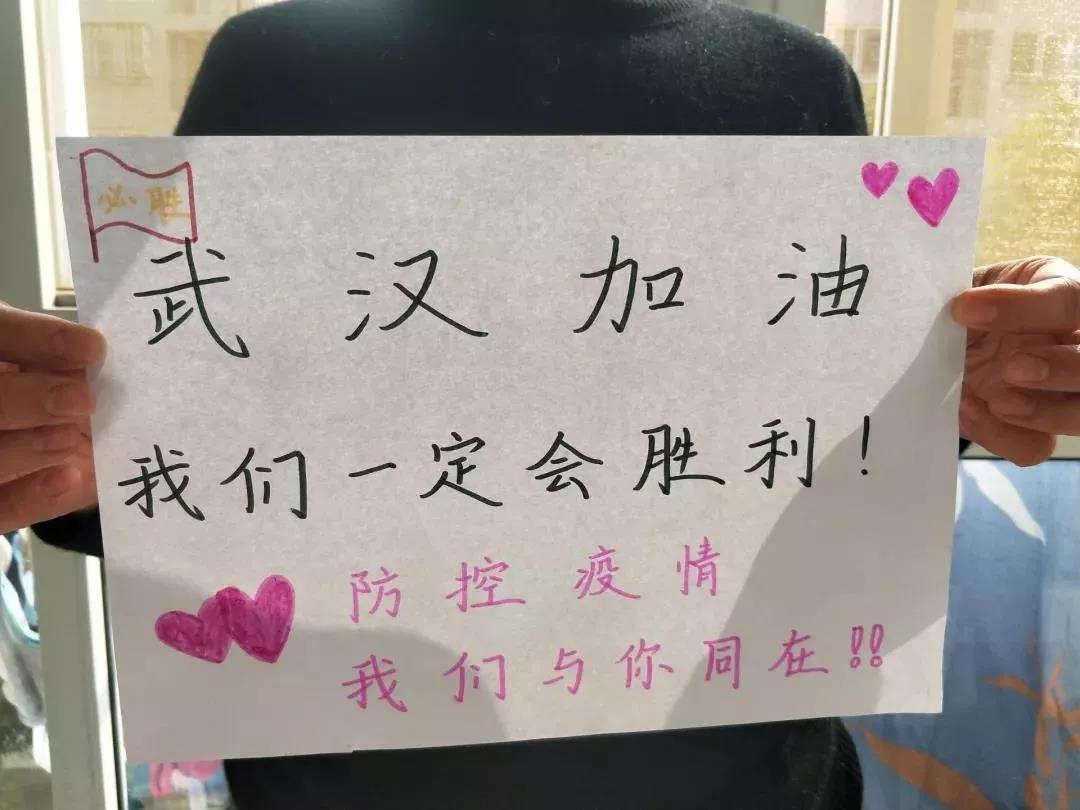 必胜
武汉加油
我们一定会胜利！
防控疫情
我们与你同在!!